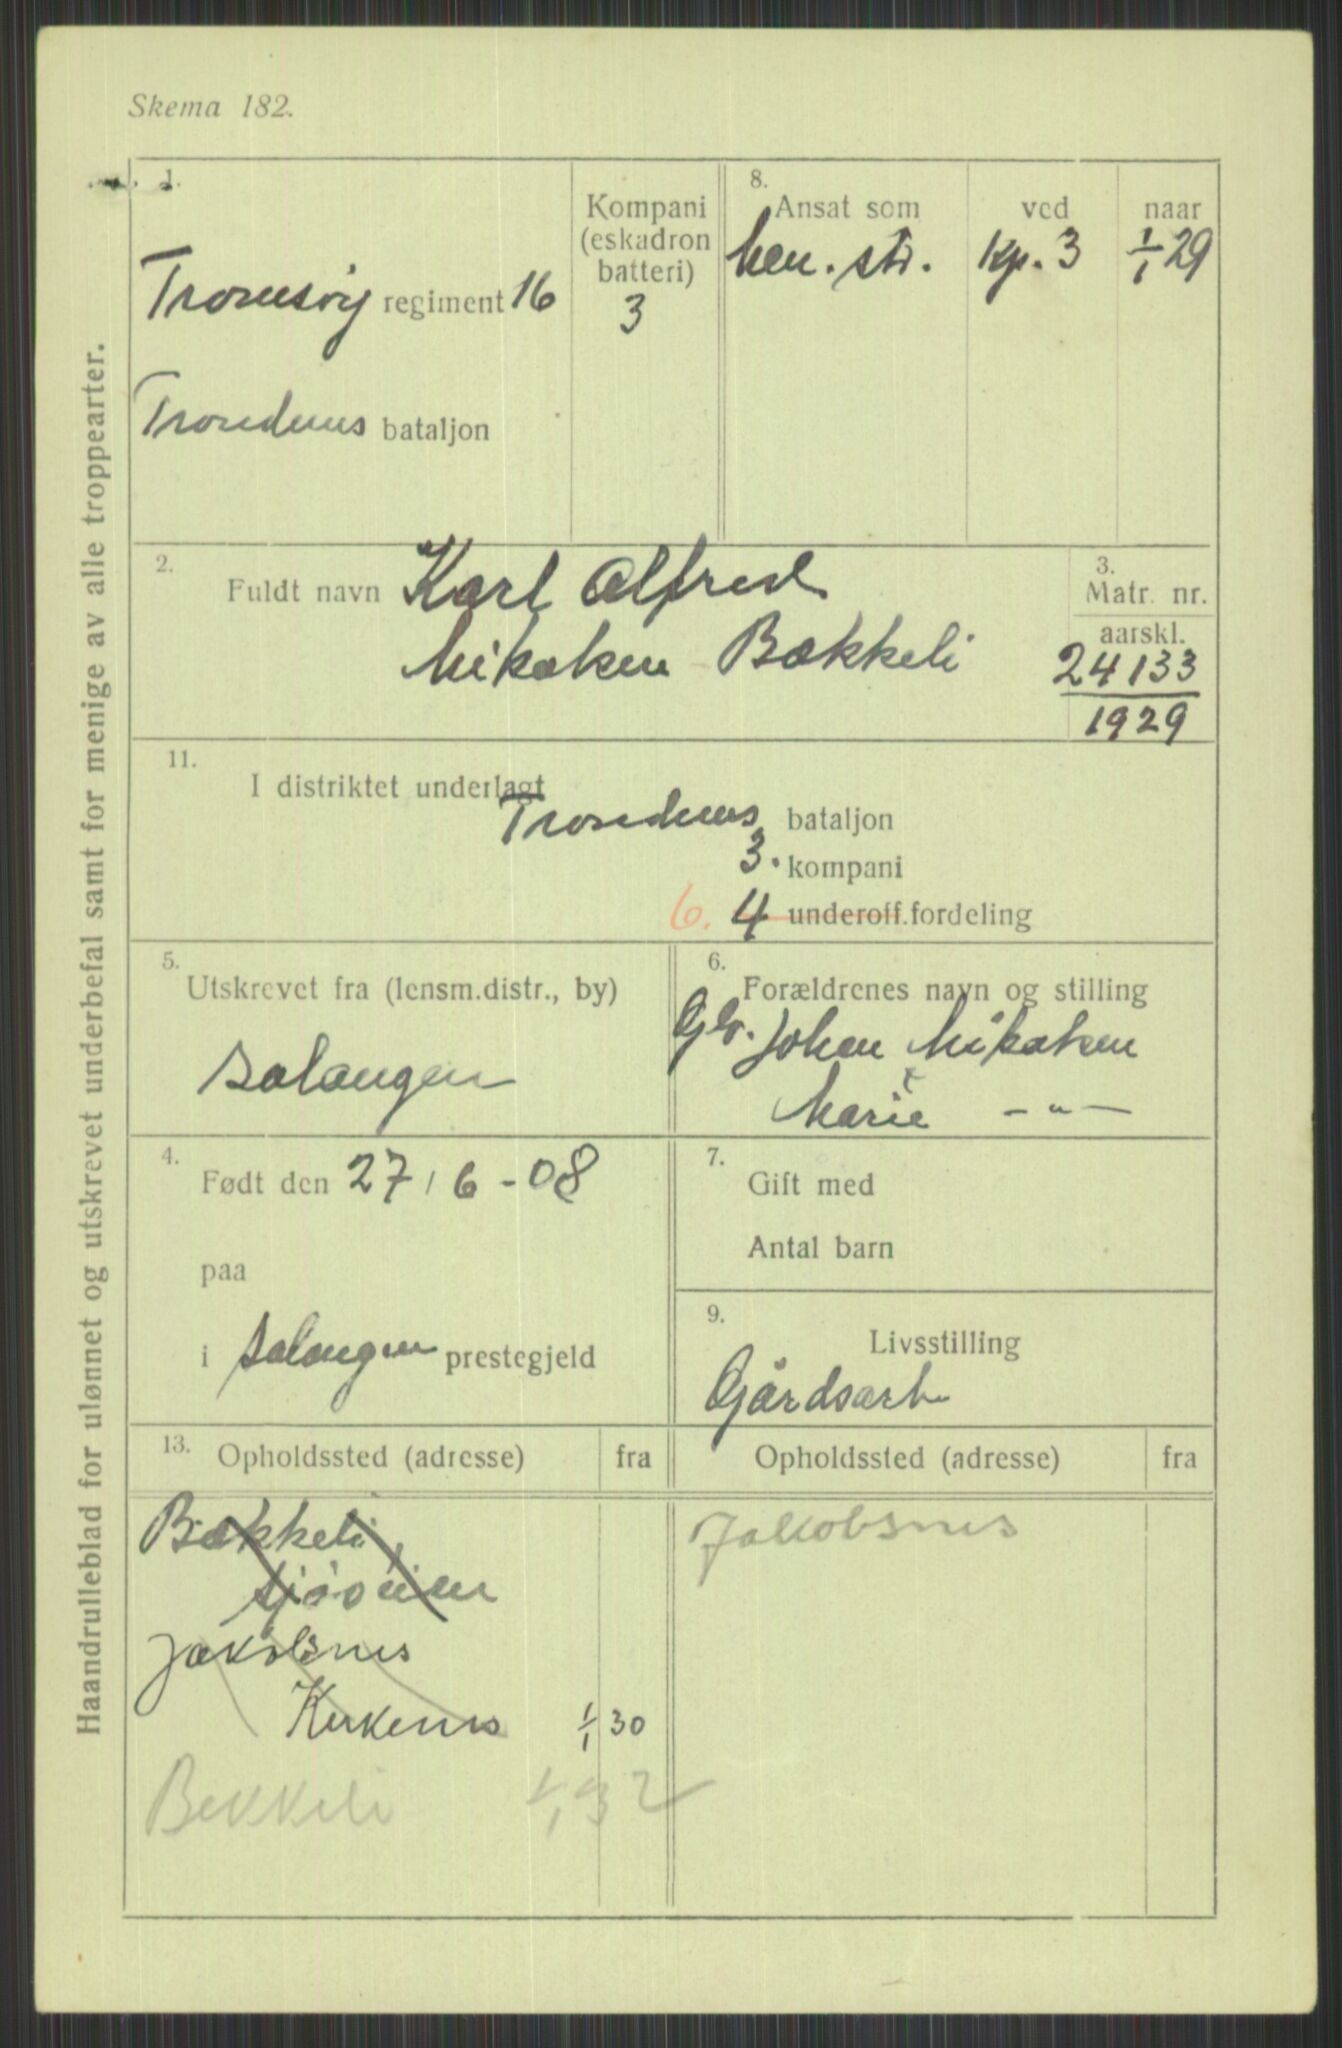 Skema 182.
Haandrulleblad for ulønnet og utskrevet underbefal samt for menige av alle troppearter.
1.
Tromsøy regiment 16
Kompani
(eskadron
batteri)
3
Trondenes bataljon
8.
Ansat som ved naar
Men. str. Kp. 3 1/1 29
2.
Fuldt navn Karl Alfred
Mikalsen Bækkeli
3.
Matr. nr.
aarskl.
24133
1929
11.
I distriktet underlagt
Trondenes bataljon
3. kompani
6. 4 underoff.fordeling
5.
Utskrevet fra (lensm.distr., by)
Salangen
6.
Forældrenes navn og stilling
Gbr. Johan Mikalsen
Marie - " -
4.
Født den 27/6-08
paa
i Salangen prestegjeld
7.
Gift med
Antal barn
9.
Livsstilling
Gårdsarb
13. Opholdssted (adresse) fra
Bækkeli
Sjøveien
Jakobsnes
Kirkenes 1/1 30
Bekkeli 1/1 32
Opholdssted (adresse) fra
Jakobsnes